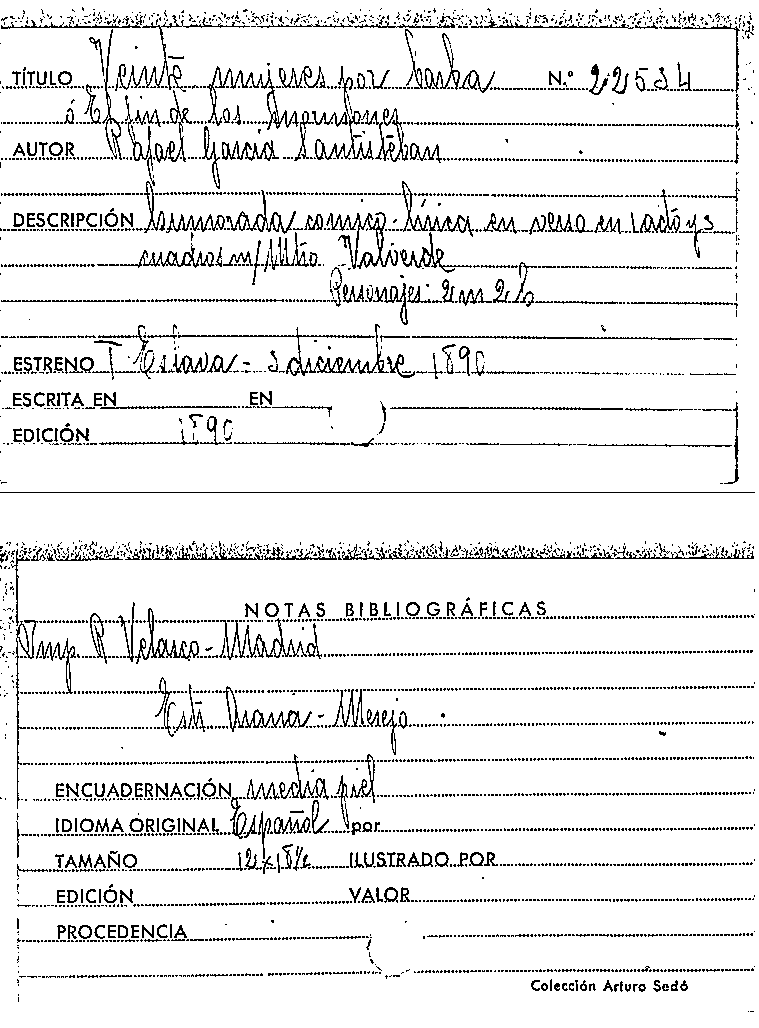 TÍTULO Veinte mujeres por barba N.º 22534
ó El fin de los
AUTOR Rafael Garcia Santisteban
DESCRIPCIÓN humorada comico-lirica en verso en 1 acto y 3
cuadros m/ Mtro Valverde
Personajes: 2 m 2 h
ESTRENO T Eslava - 3 diciembre 1890
ESCRITA EN EN
EDICIÓN 1890
NOTAS BIBLIOGRÁFICAS
Imp. R Velasco - Madrid
Estr
ENCUADERNACIÓN media piel
IDIOMA ORIGINAL Español por
TAMAÑO ILUSTRADO POR
EDICIÓN VALOR
PROCEDENCIA
Colección Arturo Sedó